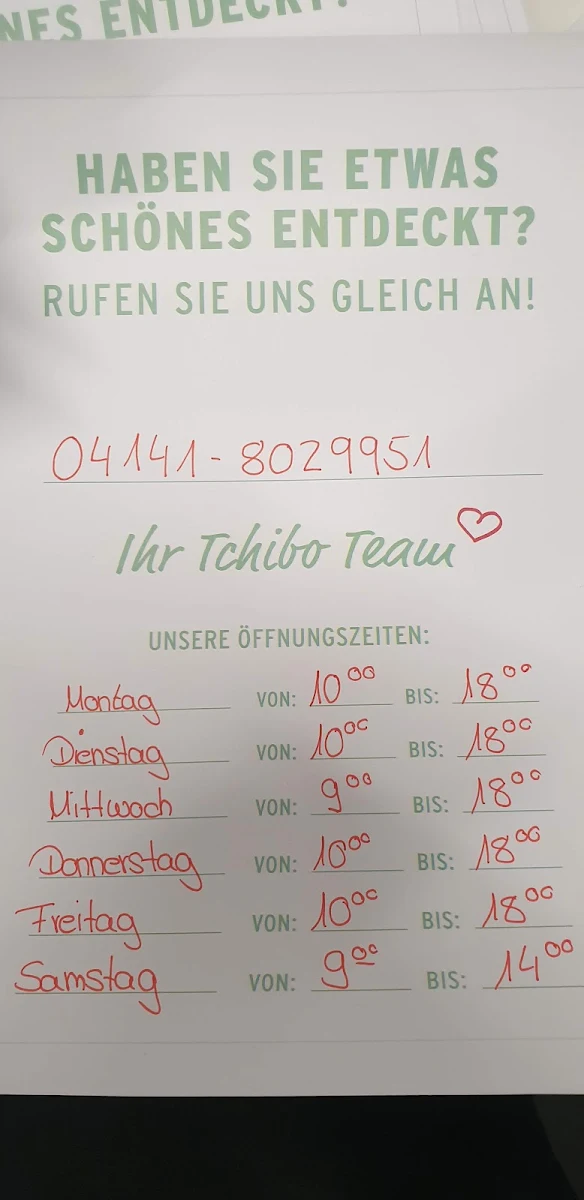 NES ENTDECKT?
HABEN SIE ETWAS
SCHÖNES ENTDECKT?
RUFEN SIE UNS GLEICH AN!
04141-8029951
Ihr Tchibo Team
UNSERE ÖFFNUNGSZEITEN:
Montag VON: 10⁰⁰ BIS: 18⁰⁰
Dienstag VON: 10⁰⁰ BIS: 18⁰⁰
Mittwoch VON: 9⁰⁰ BIS: 18⁰⁰
Donnerstag VON: 10⁰⁰ BIS: 18⁰⁰
Freitag VON: 10⁰⁰ BIS: 18⁰⁰
Samstag VON: 9⁰⁰ BIS: 14⁰⁰